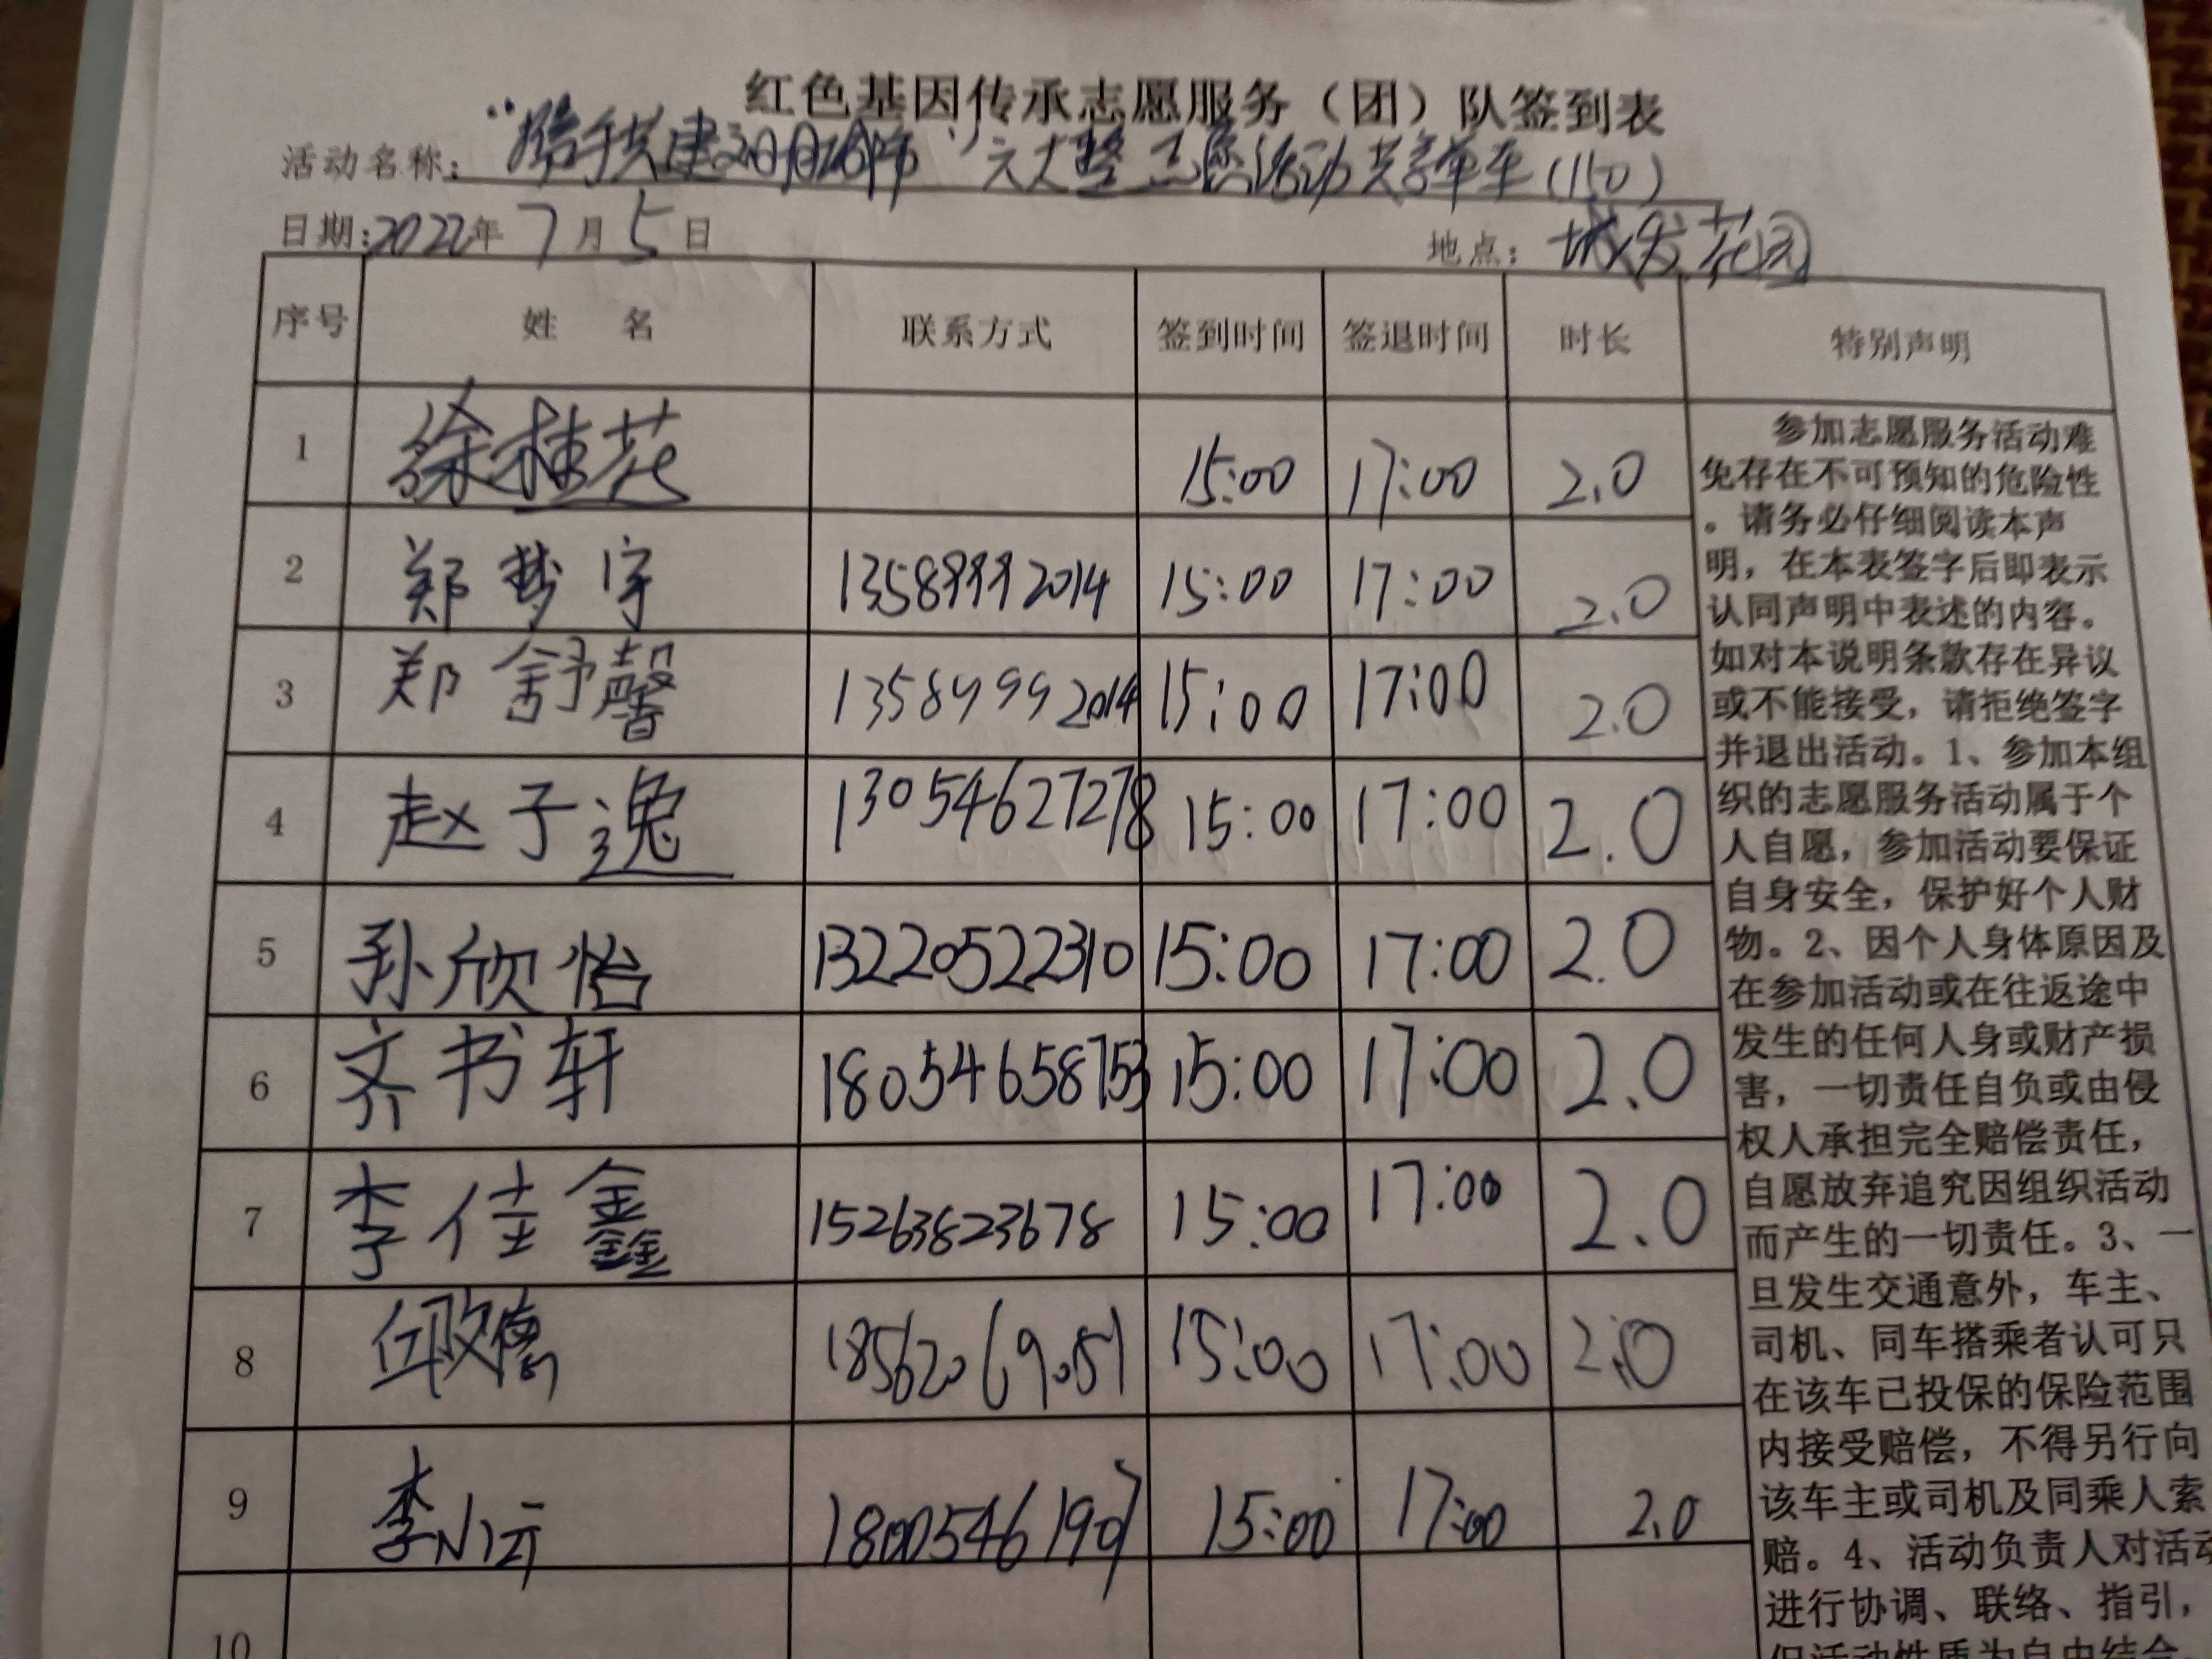 红色基因传承志愿服务（团）队签到表
活动名称：“携手共建文明城市”六大整 志愿活动 共享单车(150)
日期：2022年7月5日 地点：城发花园
序号 姓 名 联系方式 签到时间 签退时间 时长 特别声明
1 徐桂花 15:00 17:00 2.0
2 郑梦宇 13589992014 15:00 17:00 2.0
3 郑舒馨 13589992014 15:00 17:00 2.0
4 赵子逸 13054627278 15:00 17:00 2.0
5 孙欣怡 13220522310 15:00 17:00 2.0
6 齐书轩 18054658753 15:00 17:00 2.0
7 李佳鑫 15263823678 15:00 17:00 2.0
8 18562069051 15:00 17:00 2.0
9 李 18005461907 15:00 17:00 2.0
10
参加志愿服务活动难
免存在不可预知的危险性
。请务必仔细阅读本声
明，在本表签字后即表示
认同声明中表述的内容。
如对本说明条款存在异议
或不能接受，请拒绝签字
并退出活动。1、参加本组
织的志愿服务活动属于个
人自愿，参加活动要保证
自身安全，保护好个人财
物。2、因个人身体原因及
在参加活动或在往返途中
发生的任何人身或财产损
害，一切责任自负或由侵
权人承担完全赔偿责任，
自愿放弃追究因组织活动
而产生的一切责任。3、一
旦发生交通意外，车主、
司机、同车搭乘者认可只
在该车已投保的保险范围
内接受赔偿，不得另行向
该车主或司机及同乘人索
赔。4、活动负责人对活动
进行协调、联络、指引，
但活动性质为自由结合